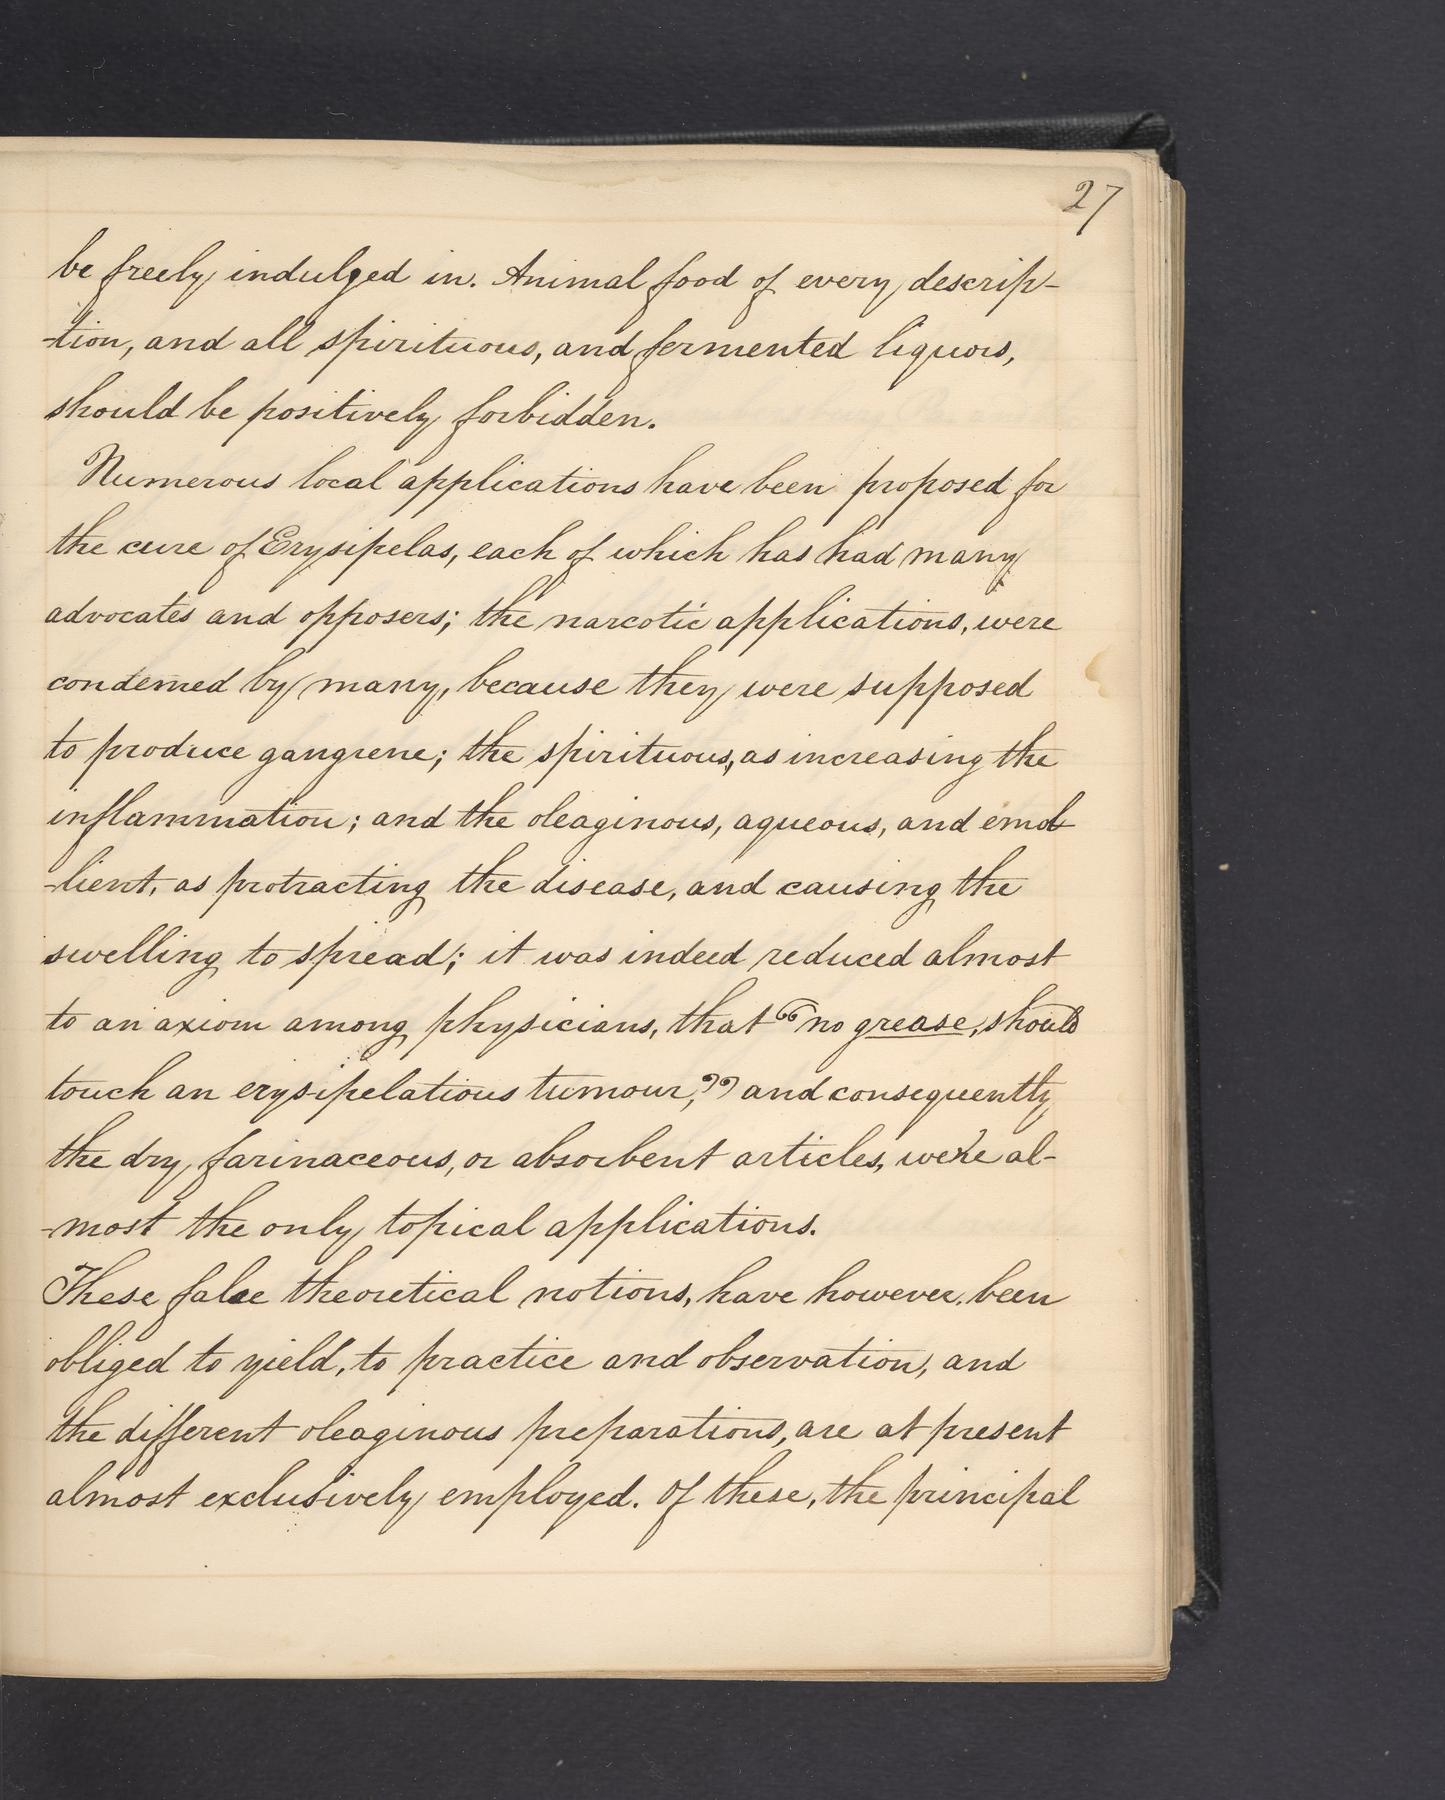 27
be freely indulged in. Animal food of every descrip-
-tion, and all spirituous, and fermented liquors,
should be positively forbidden.
Numerous local applications have been proposed for
the cure of Erysipelas, each of which has had many
advocates and opposers; the narcotic applications, were
condemed by many, because they were supposed
to produce gangrene; the spirituous, as increasing the
inflammation; and the oleaginous, aqueous, and emol-
-lient, as protracting the disease, and causing the
swelling to spread; it was indeed reduced almost
to an axiom among physicians, that “no grease, should
touch an erysipelatious tumour,” and consequently
the dry, farinaceous, or absorbent articles, were al-
-most the only topical applications.
These false theoretical notions, have however, been
obliged to yield, to practice and observation, and
the different oleaginous preparations, are at present
almost exclusively employed. Of these, the principal